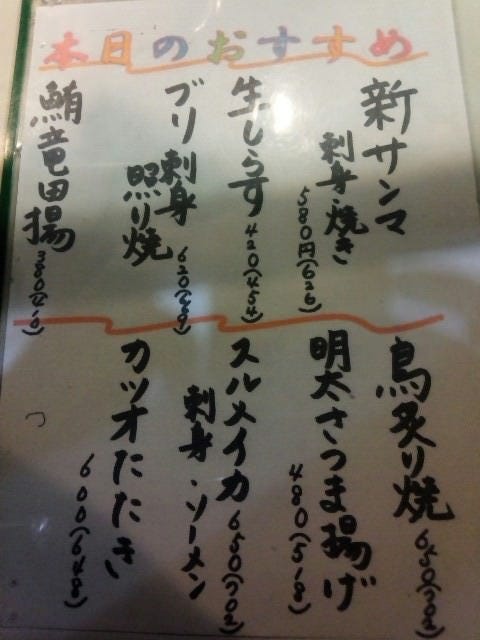 本日のおすすめ
新サンマ
刺身・焼き
580円(626)
生しらす
420(454)
ブリ刺身
照り焼
620(669)
鮪竜田揚
380(410)
鳥炙り焼
650(702)
明太さつま揚げ
480(518)
スルメイカ
刺身・ソーメン
650(702)
カツオたたき
600(648)